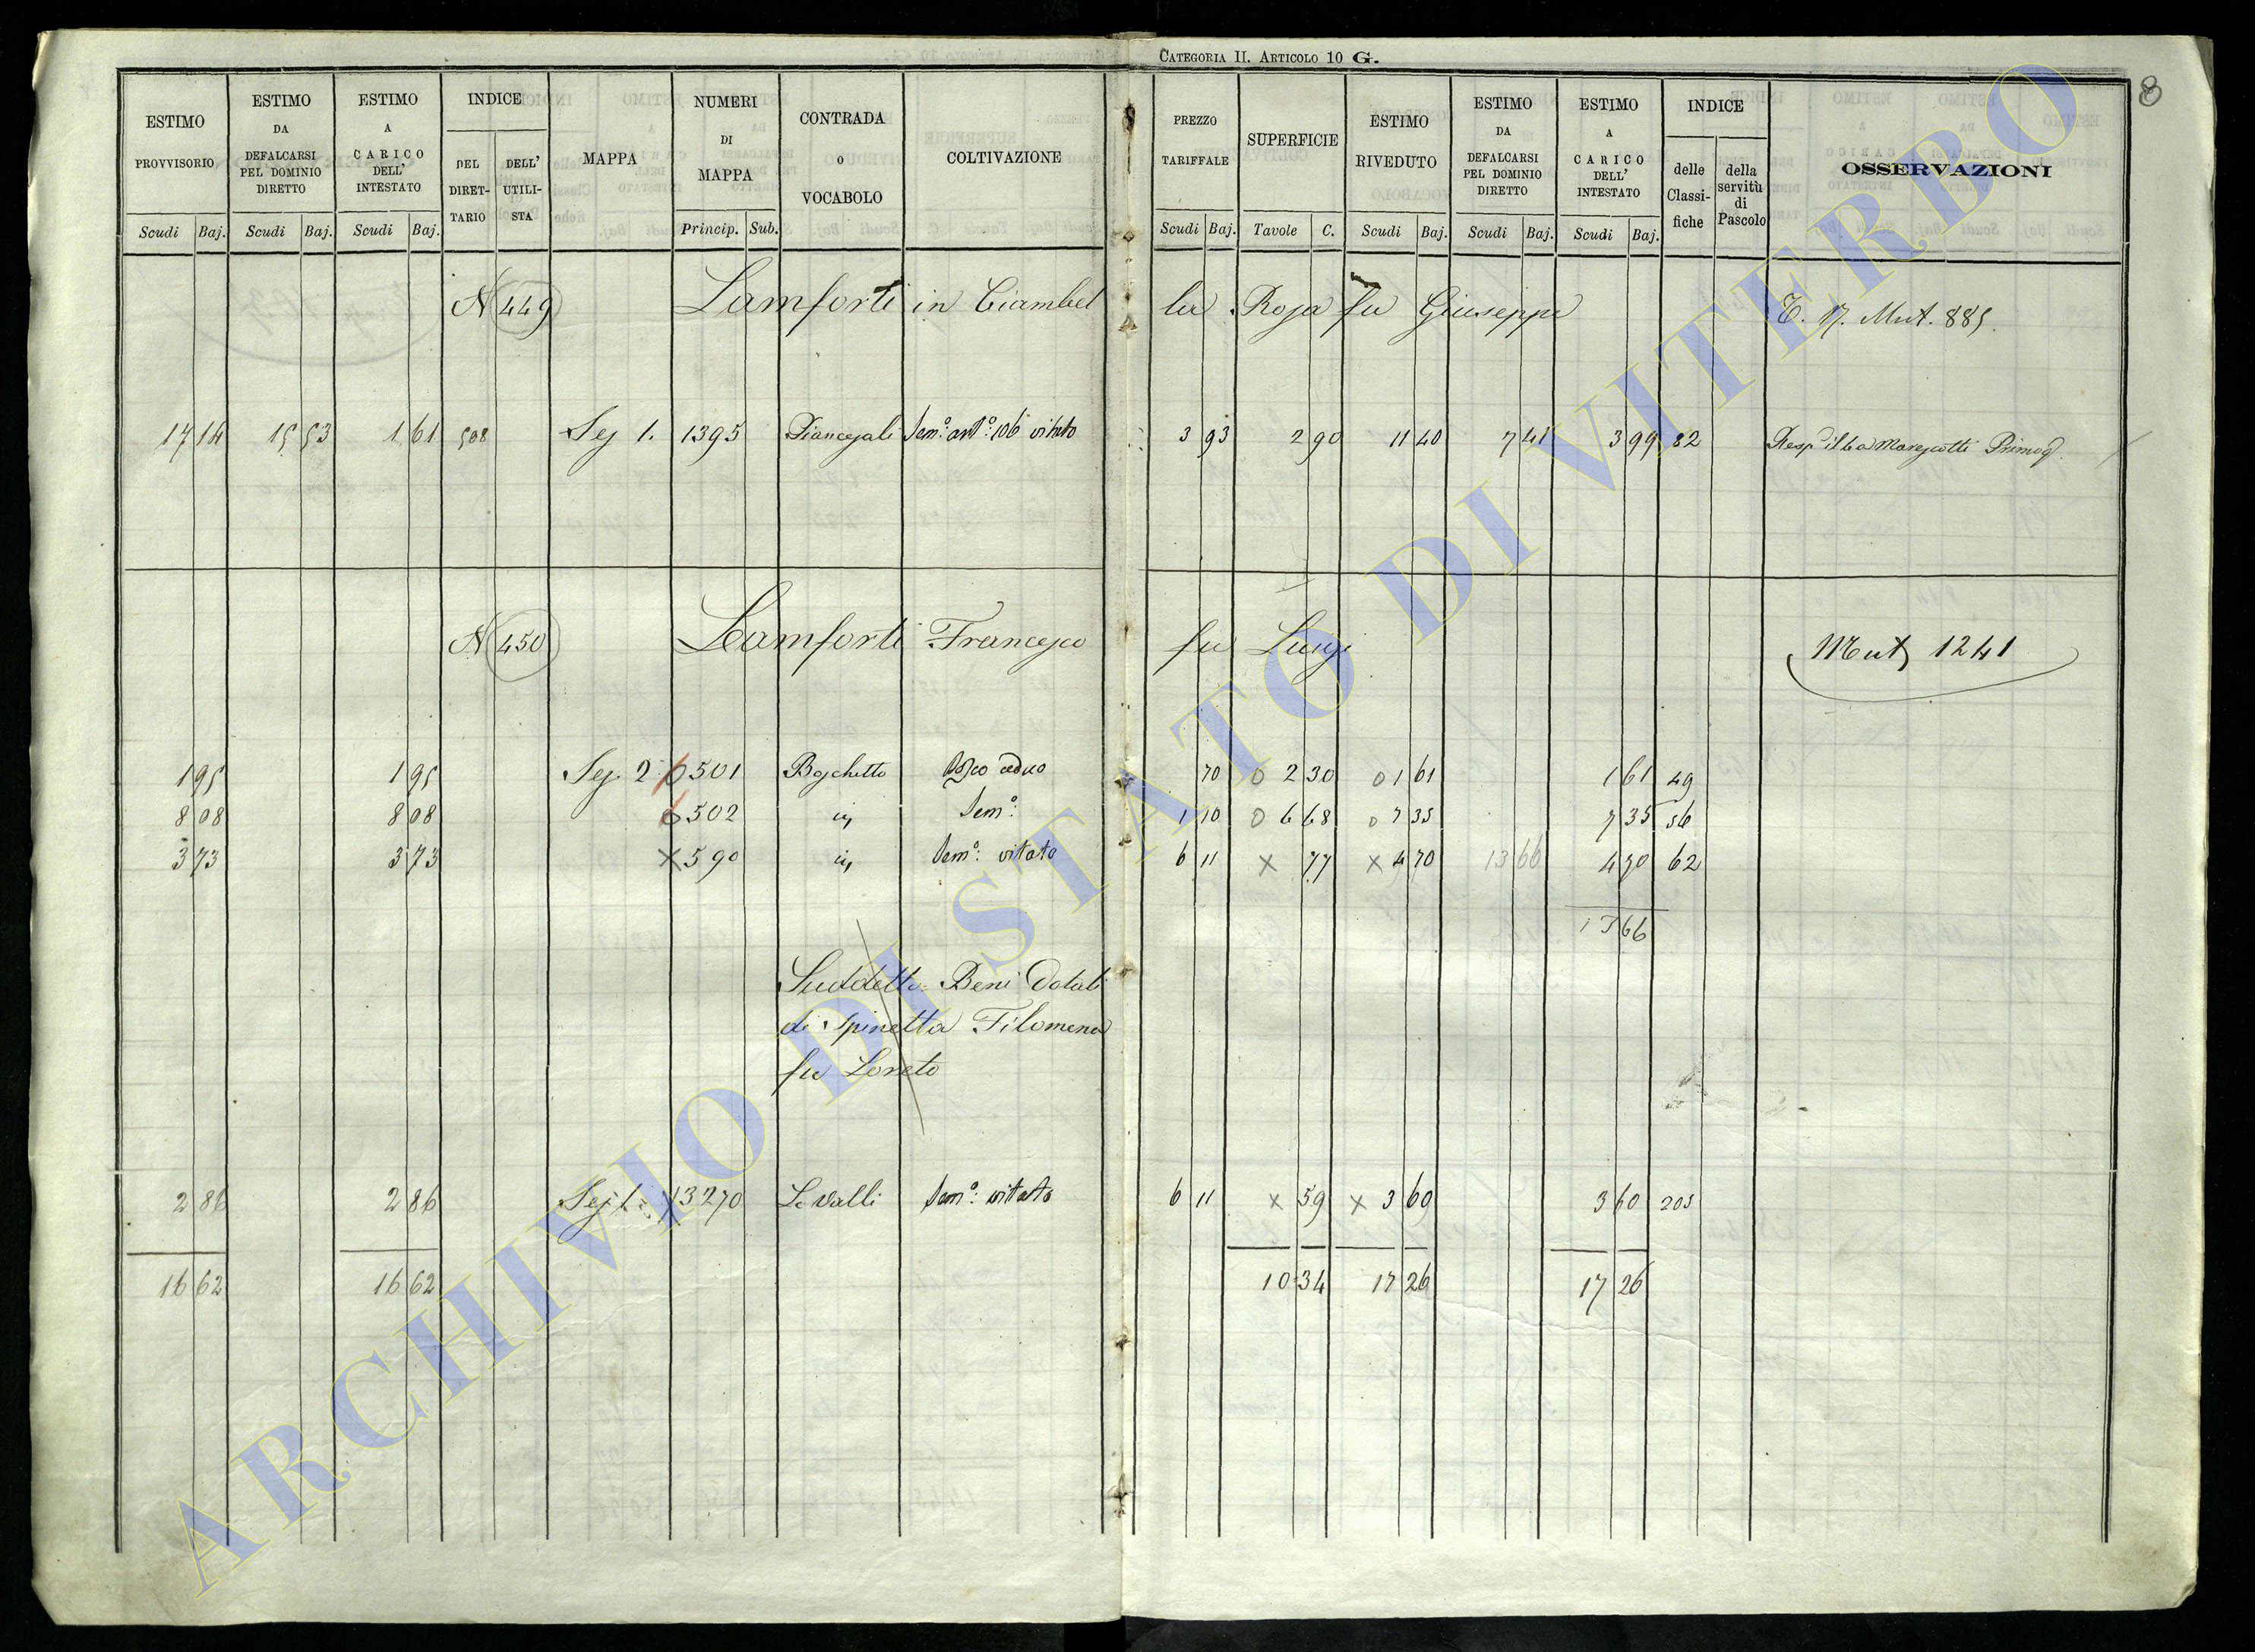 CATEGORIA II. ARTICOLO 10 G.
8
ESTIMO PROVVISORIO
Scudi Baj.
ESTIMO DA DEFALCARSI PEL DOMINIO DIRETTO
Scudi Baj.
ESTIMO A CARICO DELL' INTESTATO
Scudi Baj.
INDICE
DEL DIRET-TARIO
DELL' UTILI-STA
MAPPA
NUMERI DI MAPPA
Princip. Sub.
CONTRADA O VOCABOLO
COLTIVAZIONE
PREZZO TARIFFALE
Scudi Baj.
SUPERFICIE
Tavole C.
ESTIMO RIVEDUTO
Scudi Baj.
ESTIMO DA DEFALCARSI PEL DOMINIO DIRETTO
Scudi Baj.
ESTIMO A CARICO DELL' INTESTATO
Scudi Baj.
INDICE
delle Classi-fiche
della servitù di Pascolo
OSSERVAZIONI
N 449 Lamforti in Ciambel la Rosa fu Giuseppe Mut. 885
17 14 15 53 1 61 508 Sez 1. 1395 Sem.o vitato 3 93 2 90 11 40 7 41 3 99 82 Marescotti
N 450 Lamforti Francesco fu Luigi Mut 1241
1 95 1 95 Sez. 2 501 Boschetto Bosco ceduo 70 0 2 30 0 1 61 1 61 49
8 08 8 08 502 Sem.o 1 10 0 6 68 0 7 35 7 35 56
3 73 3 73 × 590 Sem.o: vitato 6 11 × 77 × 4 70 13 66 4 70 62
13 66
Suddetto = Beni Dotali
di Spinetta Filomena
fu Loreto
2 86 2 86 Sez 1 × 3270 Le Valli Sem.o: vitato 6 11 × 59 × 3 60 3 60 205
16 62 16 62 10 34 17 26 17 26
ARCHIVIO DI STATO DI VITERBO